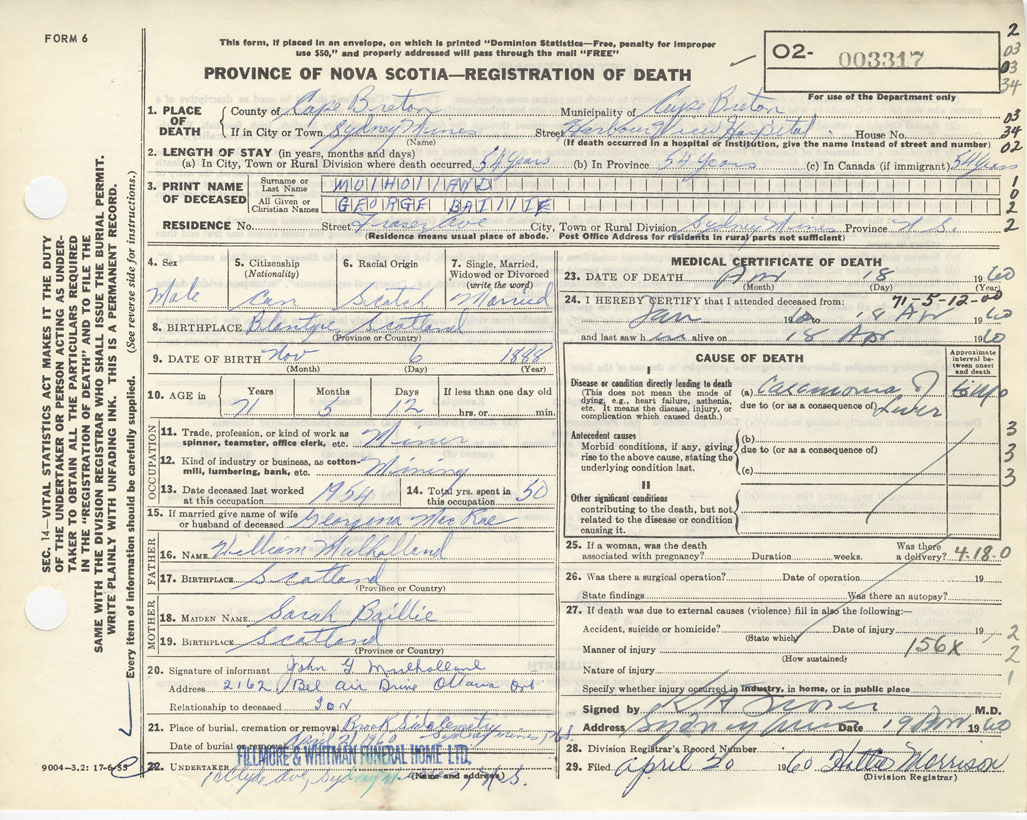 FORM 6
This form, if placed in an envelope, on which is printed "Dominion Statistics—Free, penalty for improper
use $50," and properly addressed will pass through the mail "FREE"
PROVINCE OF NOVA SCOTIA—REGISTRATION OF DEATH
02- 003317
For use of the Department only
2
03
03
34
03
34
02
1
0
2
2
SEC. 14—VITAL STATISTICS ACT MAKES IT THE DUTY
OF THE UNDERTAKER OR PERSON ACTING AS UNDER-
TAKER TO OBTAIN ALL THE PARTICULARS REQUIRED
IN THE "REGISTRATION OF DEATH" AND TO FILE THE
SAME WITH THE DIVISION REGISTRAR WHO SHALL ISSUE THE BURIAL PERMIT.
WRITE PLAINLY WITH UNFADING INK. THIS IS A PERMANENT RECORD.
Every item of information should be carefully supplied. (See reverse side for instructions.)
1. PLACE OF DEATH
County of Cape Breton Municipality of Cape Breton
If in City or Town Sydney Mines Street Harbour View Hospital House No.
(Name) (If death occurred in a hospital or institution, give the name instead of street and number)
2. LENGTH OF STAY (in years, months and days)
(a) In City, Town or Rural Division where death occurred, 54 years (b) In Province 54 Years (c) In Canada (if immigrant) 54 Years
3. PRINT NAME OF DECEASED
Surname or Last Name MULHOLLAND
All Given or Christian Names GEORGE BAILLIE
RESIDENCE No. Street Fraser Ave City, Town or Rural Division Sydney Mines Province N.S.
(Residence means usual place of abode. Post Office Address for residents in rural parts not sufficient)
4. Sex 5. Citizenship (Nationality) 6. Racial Origin 7. Single, Married, Widowed or Divorced (write the word)
Male Can Scotch Married
8. BIRTHPLACE Blantyre Scotland
(Province or Country)
9. DATE OF BIRTH Nov 6 1888
(Month) (Day) (Year)
10. AGE in Years Months Days If less than one day
71 5 12 hrs. or min.
OCCUPATION
11. Trade, profession, or kind of work as spinner, teamster, office clerk, etc. Miner
12. Kind of industry or business, as cotton-mill, lumbering, bank, etc. Mining
13. Date deceased last worked at this occupation 1954 14. Total yrs. spent in this occupation 50
15. If married give name of wife or husband of deceased Georgina McRae
FATHER
16. NAME William Mulholland
17. BIRTHPLACE Scotland
(Province or Country)
MOTHER
18. MAIDEN NAME Sarah Baillie
19. BIRTHPLACE Scotland
(Province or Country)
20. Signature of informant John G Mulholland
Address 2162 Bel Air Drive Ottawa Ont
Relationship to deceased Son
21. Place of burial, cremation or removal Brook Side Cemetery Sydney Mines N.S.
Date of burial or removal April 21 1960
FILLMORE & WHITMAN FUNERAL HOME LTD.
22. UNDERTAKER Clyde Ave, Sydney Mines, N.S.
(Name and address)
9004—3.2: 17-6-55
MEDICAL CERTIFICATE OF DEATH
23. DATE OF DEATH Apr 18 1960
(Month) (Day) (Year)
24. I HEREBY CERTIFY that I attended deceased from: 71-5-12-00
Jan 1960 to 18 Apr 1960
and last saw him alive on 18 Apr 1960
CAUSE OF DEATH
Approximate interval between onset and death
I
Disease or condition directly leading to death
(This does not mean the mode of dying, e.g., heart failure, asthenia, etc. It means the disease, injury, or complication which caused death.)
(a) Carcinoma of 6 Mo
due to (or as a consequence of) Liver
Antecedent causes
Morbid conditions, if any, giving rise to the above cause, stating the underlying condition last.
(b)
due to (or as a consequence of)
(c)
3
3
3
3
II
Other significant conditions
contributing to the death, but not related to the disease or condition causing it.
25. If a woman, was the death associated with pregnancy? Duration weeks. Was there a delivery? 4.18.0
26. Was there a surgical operation? Date of operation 19
State findings Was there an autopsy?
27. If death was due to external causes (violence) fill in also the following:—
Accident, suicide or homicide? Date of injury 19
(State which)
Manner of injury 156X
(How sustained)
Nature of injury
2
2
1
Specify whether injury occurred in industry, in home, or in public place
Signed by M.D.
Address Sydney Mines Date 19 Apr 1960
28. Division Registrar's Record Number
29. Filed April 20 1960 Hattie Morrison
(Division Registrar)